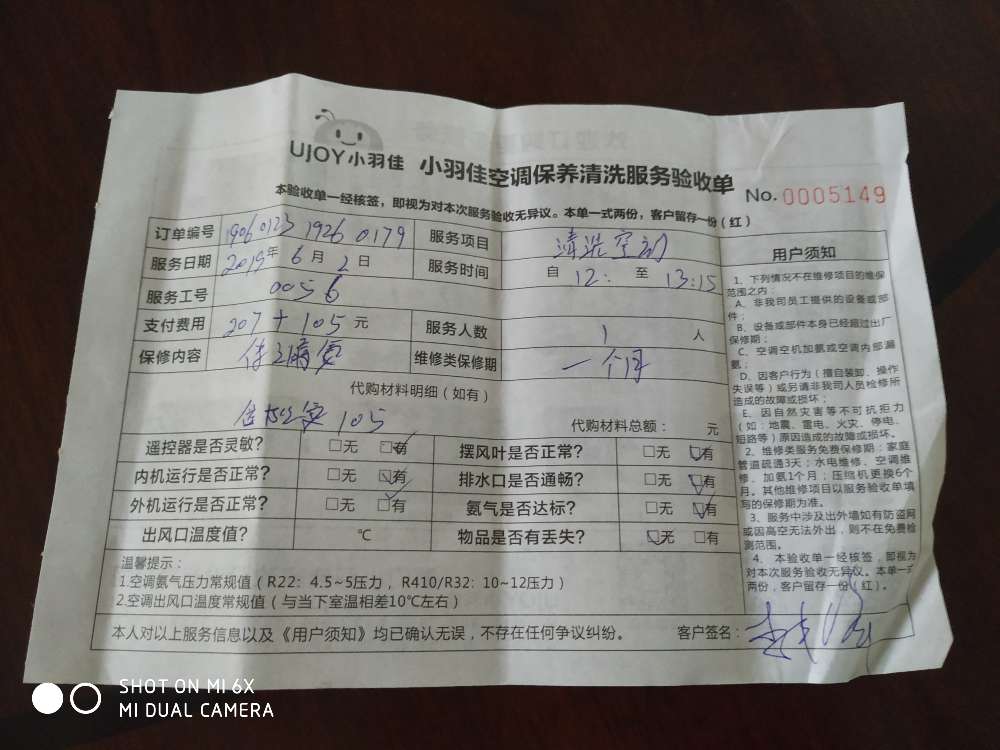 UJOY小羽佳 小羽佳空调保养清洗服务验收单 No.0005149
本验收单一经核签，即视为对本次服务验收无异议。本单一式两份，客户留存一份（红）
订单编号 1906012319260179 服务项目 清洗空调
服务日期 2019年6月2日 服务时间 自12: 至13:15
服务工号 0056
支付费用 207+105元 服务人数 1人
保修内容 维修类保修期 一个月
代购材料明细（如有）
105 代购材料总额： 元
遥控器是否灵敏？ □无 □有 摆风叶是否正常？ □无 □有
内机运行是否正常？ □无 □有 排水口是否通畅？ □无 □有
外机运行是否正常？ □无 □有 氨气是否达标？ □无 □有
出风口温度值？ ℃ 物品是否有丢失？ □无 □有
温馨提示：
1.空调氨气压力常规值（R22：4.5~5压力，R410/R32：10~12压力）
2.空调出风口温度常规值（与当下室温相差10℃左右）
本人对以上服务信息以及《用户须知》均已确认无误，不存在任何争议纠纷。 客户签名：
用户须知
1、下列情况不在维修项目的维保
范围之内：
A、非我司员工提供的设备或部
件；
B、设备或部件本身已经超过出厂
保修期；
C、空调空机加氨或空调内部漏
氨；
D、因客户行为（擅自装卸、操作
失误等）或另请非我司人员检修所
造成的故障或损坏；
E、因自然灾害等不可抗拒力
（如：地震、雷电、火灾、停电、
短路等）原因造成的故障或损坏。
2、维修类服务免费保修期：家庭
管道疏通3天；水电维修、空调维
修、加氨1个月；压缩机更换6个
月。其他维修项目以服务验收单填
写的保修期为准。
3、服务中涉及出外墙如有防盗网
或因高空无法外出，则不在免费检
测范围。
4、本验收单一经核签，即视为
对本次服务验收无异议。本单一式
两份，客户留存一份（红）。
SHOT ON MI 6X
MI DUAL CAMERA